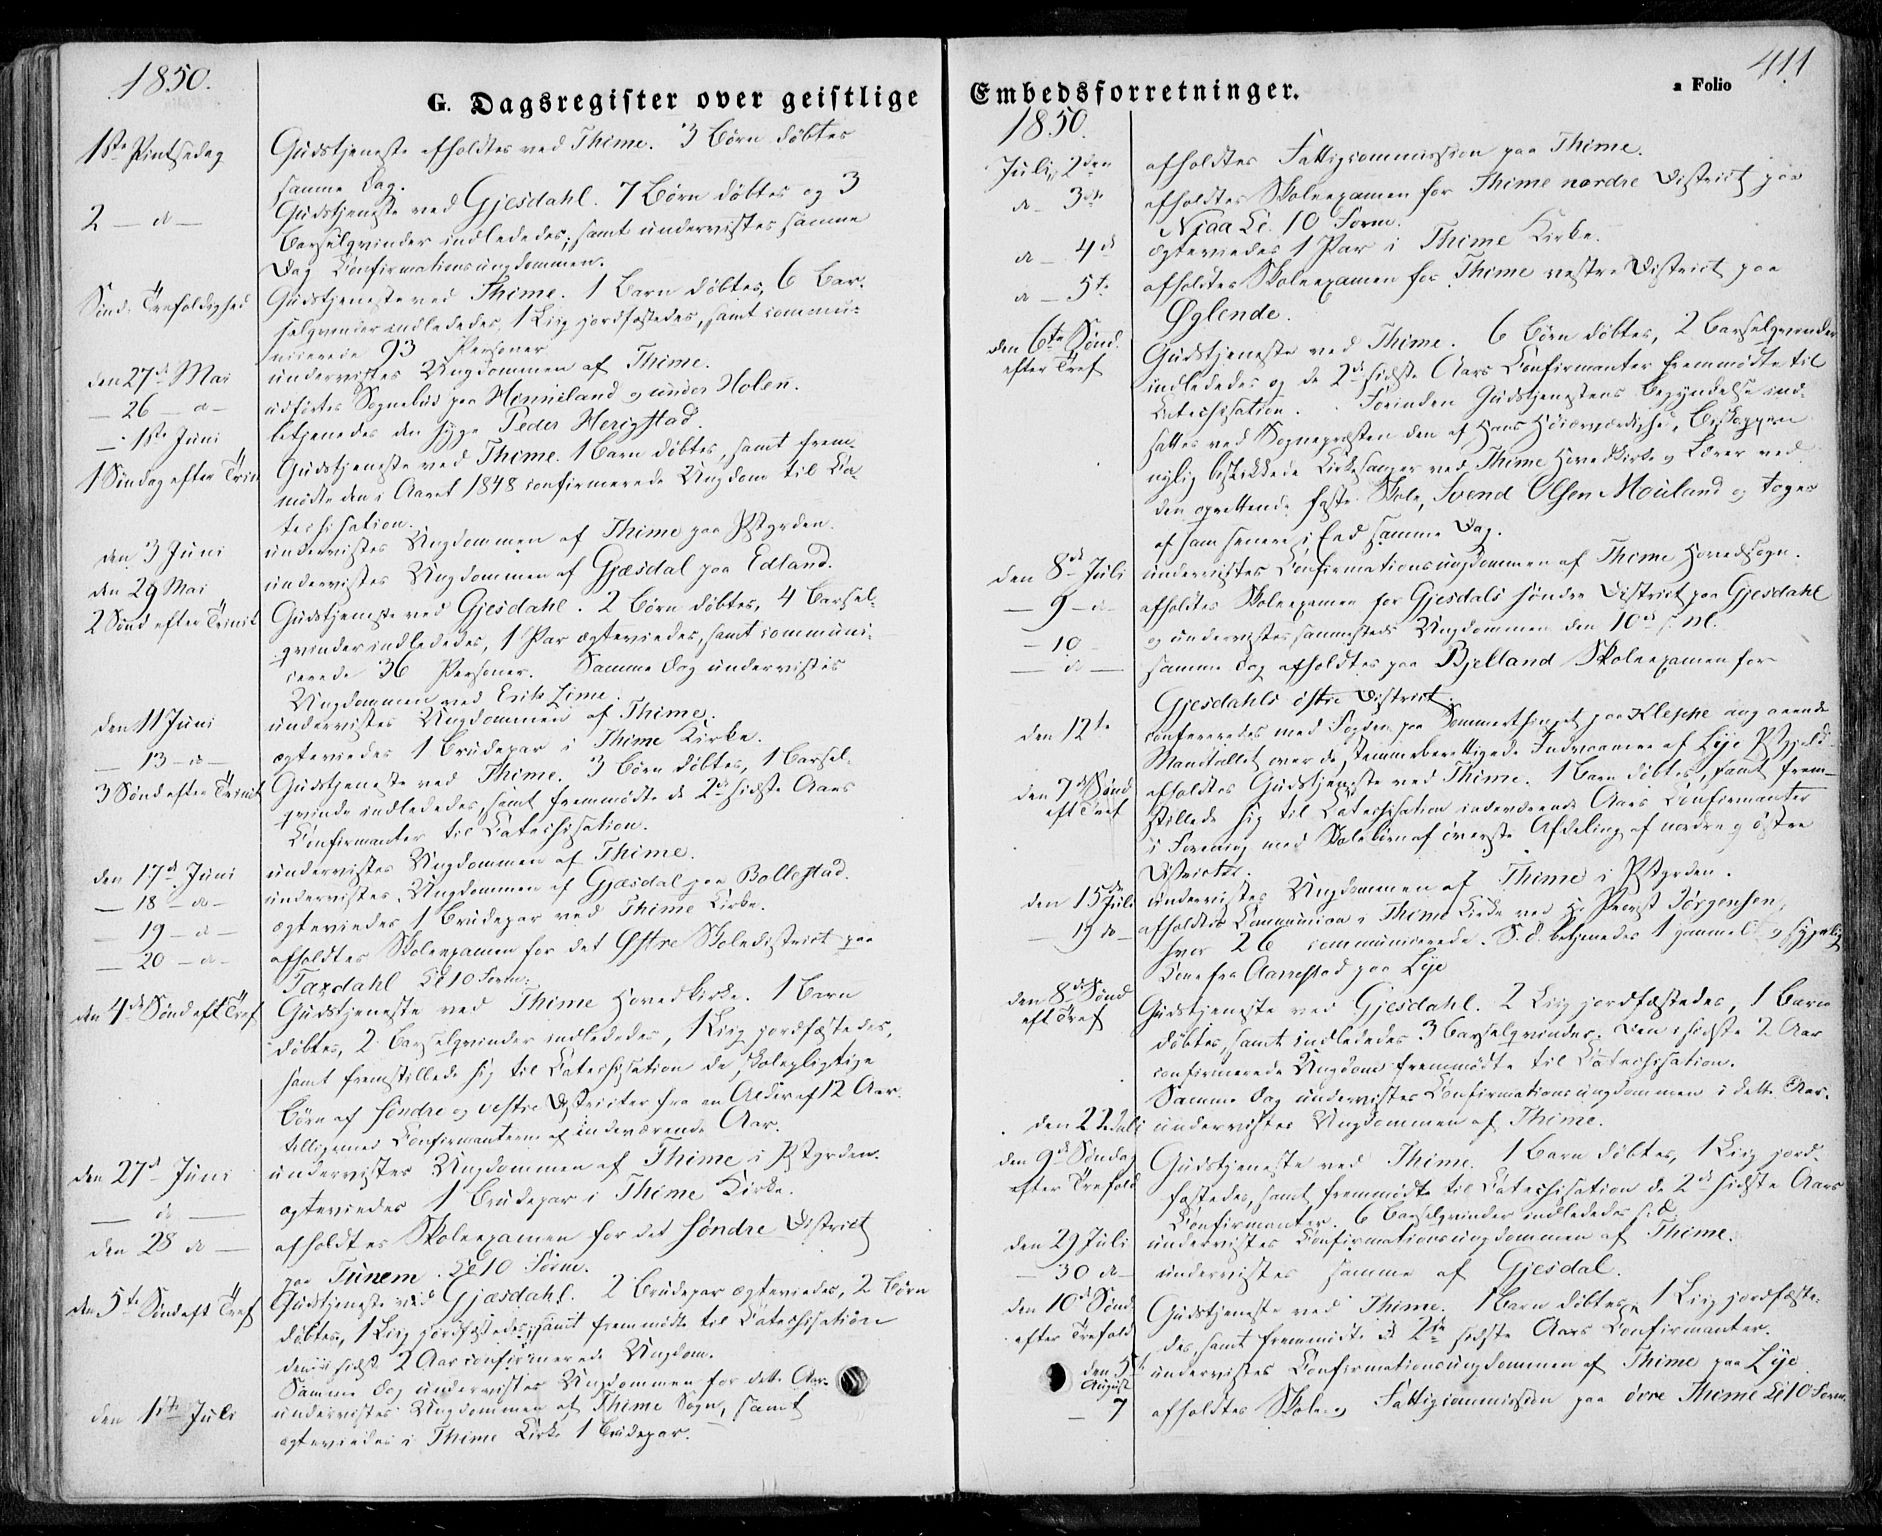 1850.
G. Dagsregister over geistlige
1ste Pintsedag Gudstjeneste afholdtes ved Thime. 3 Børn døbtes
samme Dag.
2 — d — Gudstjeneste ved Gjesdahl. 7 Børn døbtes og 3
Barselqvinder indlededes, samt undervistes samme
Dag Confirmationsungdommen.
Sønd. Trefoldighed Gudstjeneste ved Thime. 1 Barn døbtes, 6 Bar-
selqvinder indlededes, 1 Liig jordfæstedes, samt commu-
nicerede 93 Personer
den 27d Mai undervistes Ungdommen af Thime.
— 26 — d — udførtes Sognebud paa Henniland og under Holen.
— 1ste Juni betjenedes den syge Peder Herigstad.
1 Søndag efter Trin Gudstjeneste ved Thime. 1 Barn døbtes, samt frem-
mødte den i Aaret 1848 confirmerede Ungdom til Ca-
techisation.
den 3 Juni undervistes Ungdommen af Thime paa Pstgrden.
den 29 Mai undervistes Ungdommen af Gjæsdal paa Edland.
2 Sønd efter Trinit Gudstjeneste ved Gjesdahl. 2 Børn døbtes, 4 Barsel-
qvinder indlededes, 1 Par ægteviedes, samt communi-
cerede 36 Personer. Samme Dag undervistes
Ungdommen ved Erik Lime.
den 11 Juni undervistes Ungdommen af Thime.
— 13 — d — ægteviedes 1 Brudepar i Thime Kirke.
3 Sønd efter Trinit Gudstjeneste ved Thime. 3 Børn døbtes, 1 Barsel-
qvinde indlededes, samt fremmødte de 2de sidste Aars
Confirmanter til Catechisation.
den 17d Juni undervistes Ungdommen af Thime.
— 18 — d — undervistes Ungdommen af Gjæsdal paa Bollestad.
— 19 — d — ægteviedes 1 Brudepar ved Thime Kirke.
— 20 — d — afholdtes Skoleexamen for det Østre Skoledistrict paa
Taxdahl Kl 10 Form.
den 4de Sønd eft Tref Gudstjeneste ved Thime Hovedkirke. 1 Barn
døbtes, 2 Barselqvinder indlededes, 1 Liig jordfæstedes,
samt fremstillede sig til Catechisation de skolepligtige
Børn af søndre og vestre Districter fra en Alder af 12 Aar.
tilligemed Confirmanterne af indeværende Aar.
den 27d Juni undervistes Ungdommen af Thime i Pstgrden.
— d — ægteviedes 1 Brudepar i Thime Kirke.
den 28 d — afholdtes Skoleexamen for det søndre District
paa Tunem. Kl 10 Form.
den 5te Sønd eft Tref Gudstjeneste ved Gjæsdahl. 2 Brudepar ægteviedes, 2 Børn
døbtes, 1 Liig jordfæstedes, samt fremmødte til Catechisation
den i sidst 2 Aar confirmerede Ungdom.
Samme Dag undervistes Ungdommen for dette Aar.
den 1ste Juli undervistes Ungdommen af Thime Sogn, samt
ægteviedes i Thime Kirke 1 Brudepar.
411
Embedsforretninger.
a Folio
1850.
Juli, 2den afholdtes Fattigcommission paa Thime.
d — 3die afholdtes Skoleexamen for Thime nordre District paa
Njaa Kl. 10 Form.
d — 4d ægteviedes 1 Par i Thime Kirke.
d — 5te afholdtes Skoleexamen for Thime vestre District paa
Øglende.
den 6te Sønd. efter Tref Gudstjeneste ved Thime. 6 Børn døbtes, 2 Barselqvinder
indlededes og de 2de sidste Aars Confirmanter fremmødte til
Catechisation. Forinden Gudstjenestens Begyndelse ind-
sattes ved Sognepræsten den af Hans Høiærværdighed, Biskoppen
nylig beskikkede Kirkesanger ved Thime Hovedkirke og Lærer ved
den oprettende faste Skole, Svend Olsen Mouland og toges
af ham senere i Eed samme Dag.
den 8de Juli undervistes Confirmationsungdommen af Thime Hovedsogn.
— 9 — d — afholdtes Skoleexamen for Gjesdals søndre District paa Gjesdahl
— 10 — og undervistes sammesteds Ungdommen den 10d s. M.
— d — samme Dag afholdtes paa Bjelland Skoleexamen for
Gjesdahls østre District.
den 12te confereredes med Fogden paa Sommerthinget paa Kleppe angaaende
Mandtallet over de stemmeberettigede Indvaanere af Lye Pstgjeld
den 7de Sønd eft Tref afholdtes Gudstjeneste ved Thime. 1 Barn døbtes, samt frem-
stillede sig til Catechisation indeværende Aars Confirmanter
i Forening med Skolebørn af øverste Afdeling af nordre og østre
Districter.
den 15de Juli undervistes Ungdommen af Thime i Pstgrden.
— 19 d — afholdtes Communion i Thime Kirke ved Hr. Provst Jørgensen,
hvor 26 communicerede. S. d. betjenedes 1 gammel og sygelig
Kone fra Aarrestad paa Lye
den 8de Sønd eft Tref Gudstjeneste ved Gjesdahl. 2 Liig jordfæstedes, 1 Barn
døbtes, samt indlededes 3 Barselqvinder. Den i sidste 2 Aar
confirmerede Ungdom fremmødte til Catechisation.
Samme Dag undervistes Confirmationsungdommen i dette Aar.
den 22 Juli undervistes Ungdommen af Thime.
den 9de Søndag efter Trefold Gudstjeneste ved Thime. 1 Barn døbtes, 1 Liig jord-
fæstedes, samt fremmødte til Catechisation de 2de sidste Aars
Confirmanter. 6 Barselqvinder indlededes s. D.
den 29 Juli undervistes Confirmationsungdommen af Thime.
— 30 d — undervistes samme af Gjesdal.
den 10d Sønd efter Trefold Gudstjeneste ved Thime. 1 Barn døbtes, 1 Liig jordfæste-
des, samt fremmødte de 2de sidste Aars Confirmanter.
den 5t August undervistes Confirmationsungdommen af Thime paa Lye
— 7 afholdtes Skole- og Fattigcommission paa övre Thime Kl 10 Form.